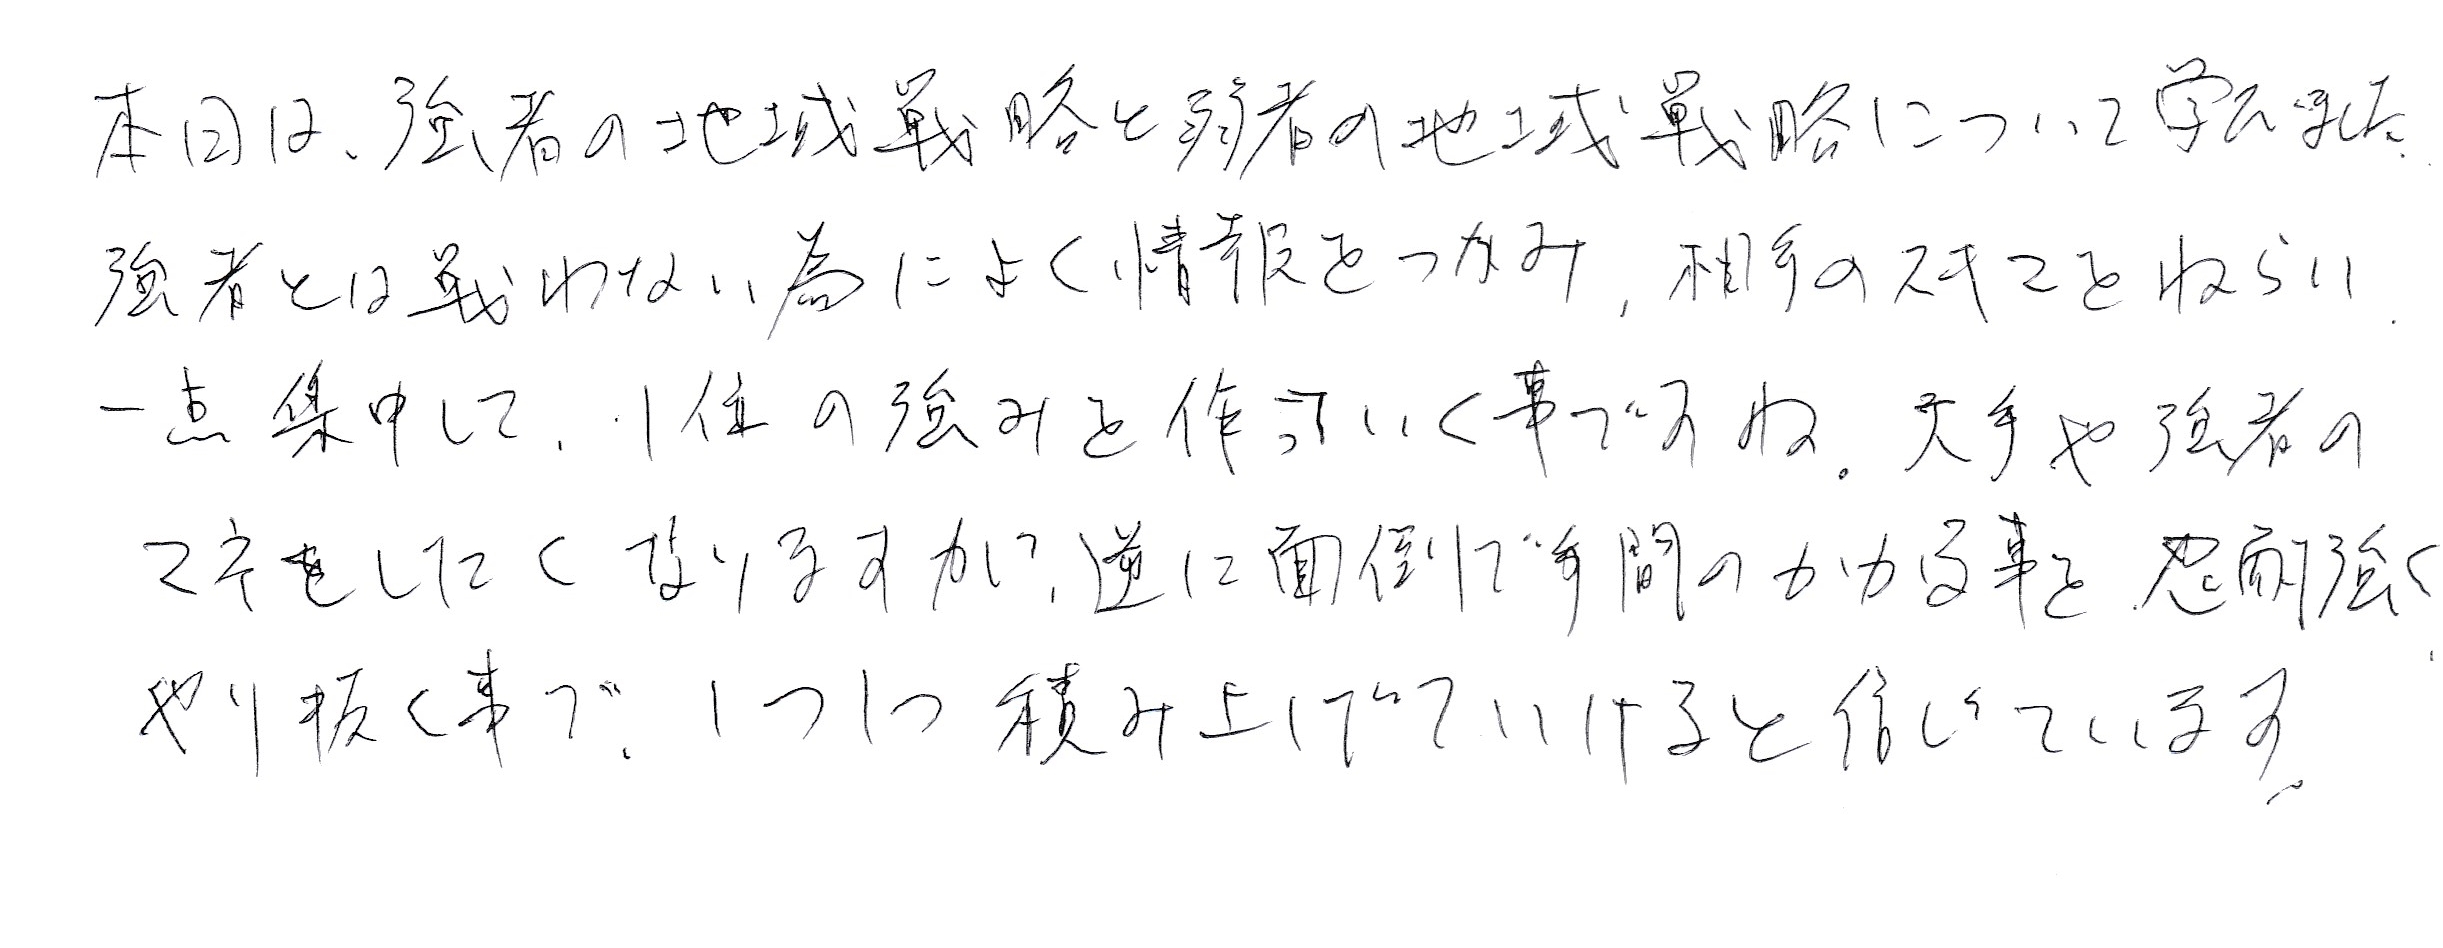 本日は、強者の地域戦略と弱者の地域戦略について学びました。
強者とは戦わない為によく情報をつかみ、相手のスキマをねらい、
一点集中して、1位の強みを作っていく事ですね。大手や強者の
マネをしたくなりますが、逆に面倒で手間のかかる事を忍耐強く、
やり抜く事で、1つ1つ積み上げていけると信じています。